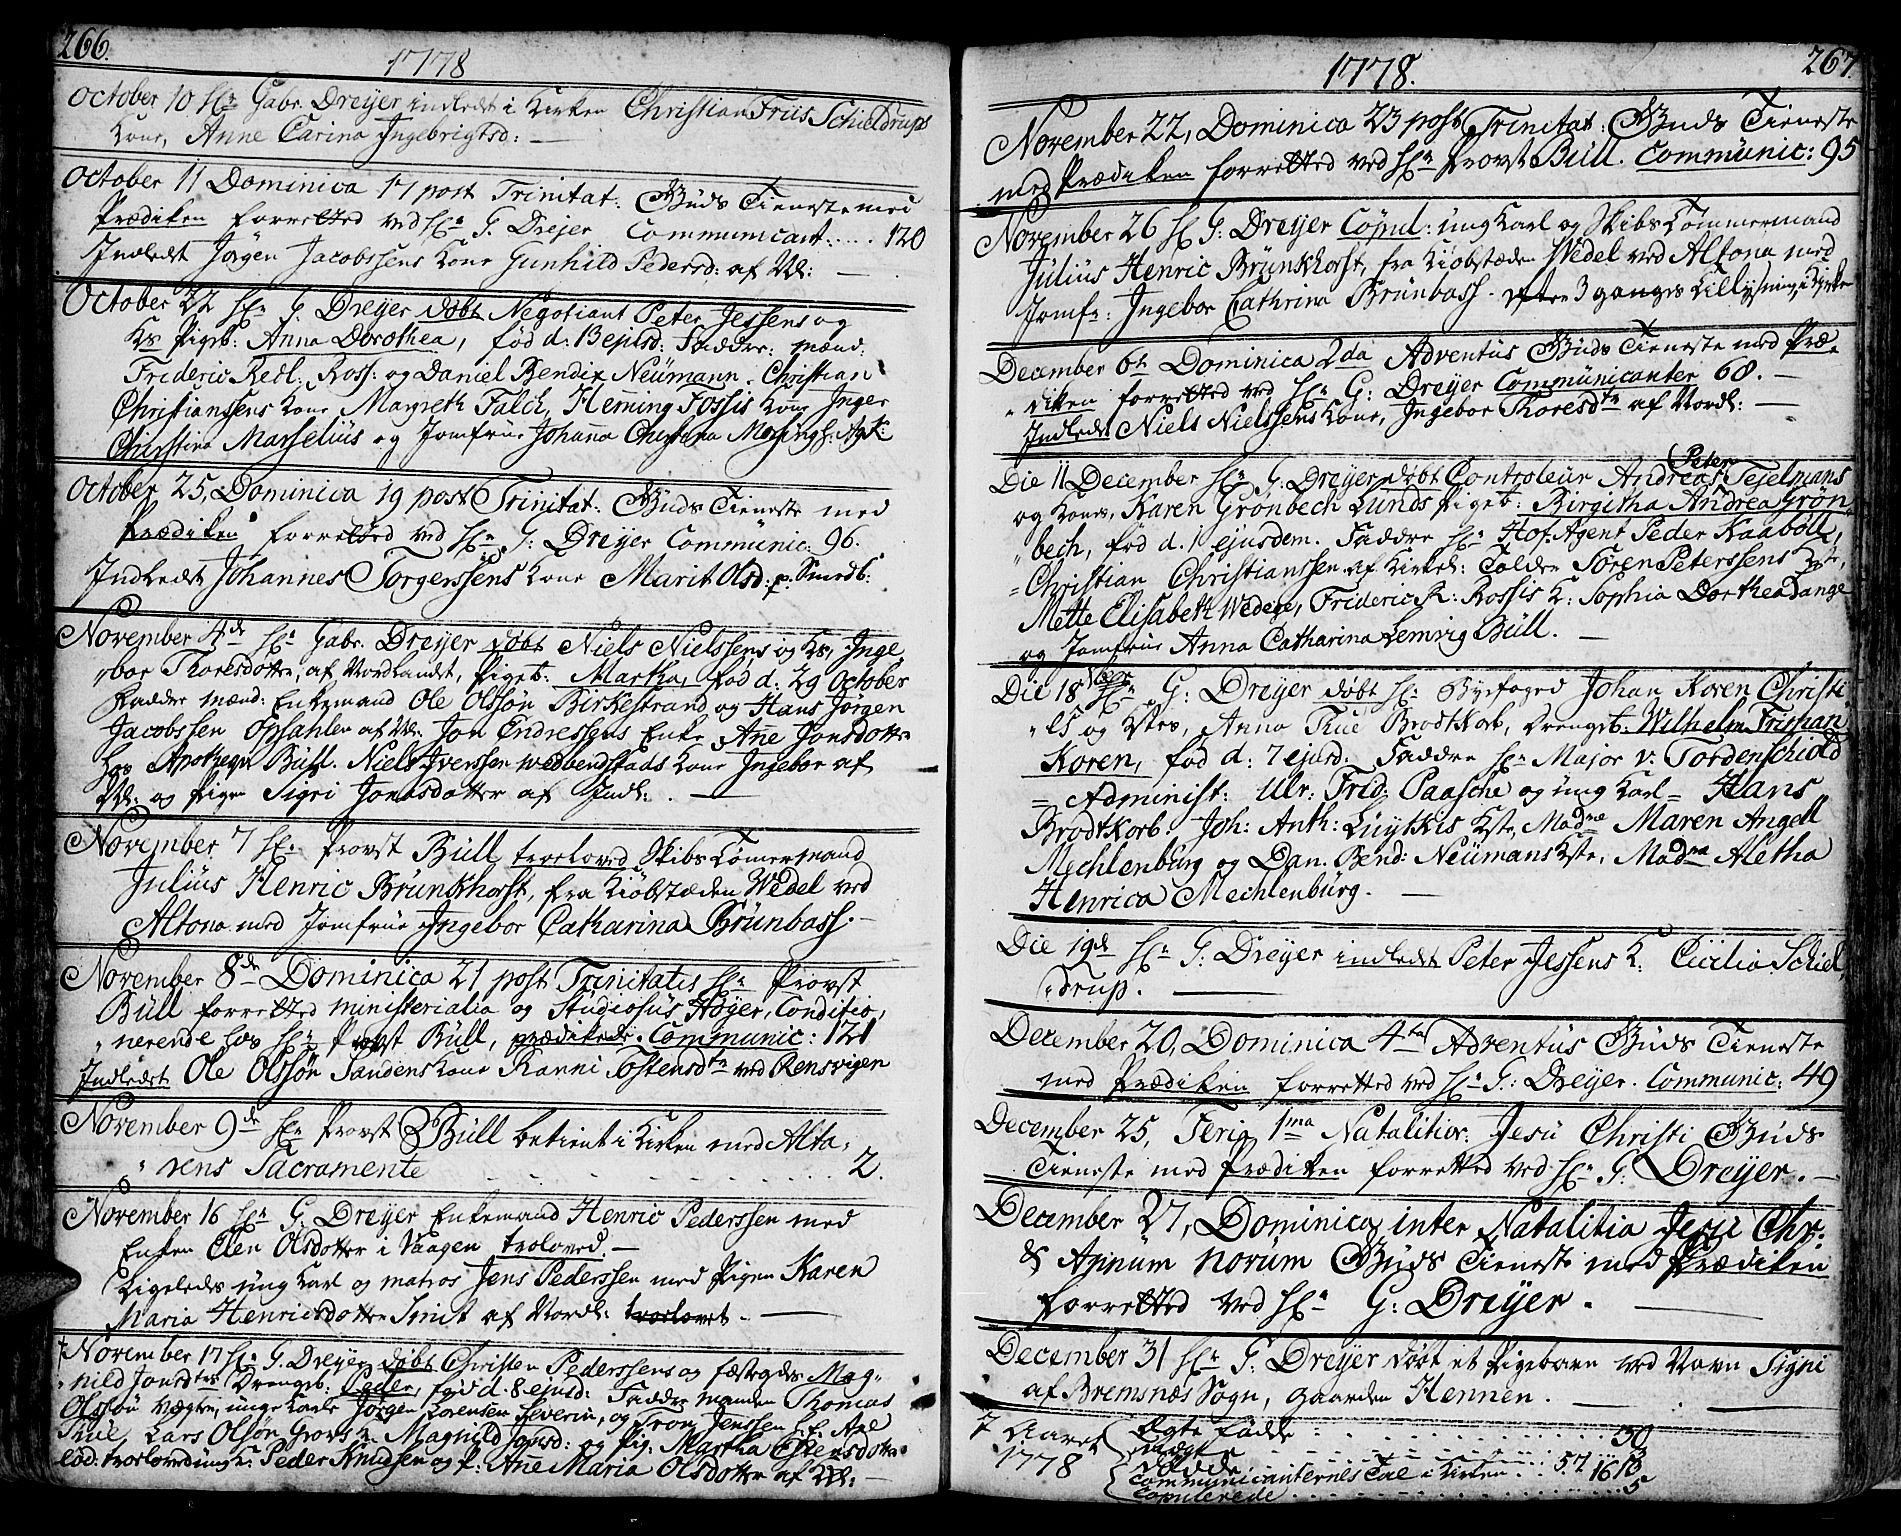 266.
1778
October 10 Hr: Gabr. Dreyer indledt i Kirken Christian Friis Schieldrups
Kone, Anne Carina Ingebrigtsd: —
October 11 Dominica 17 post Trinitat: Guds Tieneste med
Prædiken forretted ved Hr: G. Drejer Communicant..... 120
Indledt Jørgen Jacobssens Kone Gunhild Pedersd: af Nl: —
October 22 Hr: G. Dreyer døbt Negotiant Peter Jessens og
Ks Pigeb: Anna Dorothea, fød d: 13 ejusd: Fadder: mænd:
Frideric Redl: Ross: og Daniel Bendix Neumann. Christian
Christianssens Kone Margreth Falch, Hening Fossis Kone Inger
Christina Marselius og Jomfrue Johana Christina Mosing
October 25, Dominica 19 post Trinitat: Guds Tieneste med
Prædiken forretted ved Hr: G: Dreyer Communic: 96.
Indledt Johannes Torgerssens Kone Marit Olsd: p. Smedb:
November 4de Hr: Gabr. Dreyer døbt Niels Nielssens og Ks, Inge
bor Thoresdotter, af Nordlandet, Pigeb: Martha, fød d: 29 October
Fadder mænd: Enkemand Ole Olssøn Birkestrand og Hans Jørgen
Jacobssen Opsahlen af Nl: Jon Endressens Enke Ane Jonsdotter
hos Apotheqr Büll. Niels Iverssen Wedbendstads Kone Ingebor af
Nl: og Pigen Sigri Jonasdotter af Indl: . —
November 7 Hr: Provst Büll troeloved Skibs Tømermand
Julius Henric Brunkhorst, fra Kiøbstæden Wedel ved
Altona med Jomfrue Ingebor Catharina Brünbass. —
November 8de Dominica 21 post Trinitatis Hr: Provst
Büll forretted ministerialia og Studiosus Høyer, Conditio,
nerende hos Hr: Provst Büll, prædikede. Communic: 121
Indledet Ole Olssøn Sandens Kone Ranni Tostensdtr ved Rensvigen
November 9de Hr: Provst Büll betient i Kirken med Alta,
rens Sacramente . . . . . . . . 2.
November 16 Hr: G: Dreyer Enkemand Henric Pederssen med
Enken Elen Olsdotter i Vaagen troloved. —
Ligeledes ung Karl og matros Jens Pederssen med Pigen Karen
Maria Henricsdotter Smit af Nordl: troelovet. —
November 17 Hr: G. Dreyer døbt Christen Pederssens og fæstedes Mag-
nild Jonsdtrs Drengeb: Peder, fød d. 8 ejusd: Faddr manden Thomas
Olssøn Vægter, unge Karle Jørgen Lorensen Severin, og Tron Jenssen
Lars Olsøn Grovs K. Magnild Jonsd: og Pig: Martha Estensdotter
troeloved ung K: Peder Knudsen og P: Ane Maria Olsdotter af Nl: —
267.
1778.
November 22, Dominica 23 post Trinitat: Guds Tieneste
med Prædiken forretted ved Hr: Provst Büll. Communic: 95
November 26 Hr G: Dreyer Copul: ung Karl og Skibs Tømmermand
Julius Henric Brunkhorst, fra Kiøbstæden Wedel ved Altona med
Jomfr: Ingebor Cathrina Brünbass. efter 3 ganges tillysning i Kirke
December 6te Dominica 2da Adventus Guds Tieneste med Præ,
diken forretted ved Hr: G: Dreyer Communicanter 68. —
Indledt Niels Nielssens Kone, Ingebor Thoresdtr af Nordl: —
Die 11 December Hr: G: Dreyer døbt Controleur Andreas Peter Tejelmans
og Kones, Karen Grønbech Lunds Pigeb: Birgitha Andrea Grøn,
bech, fød d. 1 ejusdem. Faddre Hr: Hof Agent Peder Kaaboll,
Christian Christianssen af Kirkel: Tolder Søren Peterssens Kste,
Mette Elisabeth Wedege, Frideric R: Rossis K: Sophia Dorthea Dange
og Jomfrue Anna Catharina Lemvig Büll. —
Die 18 Xbr Hr: G: Dreyer døbt Hr: Byefoged Johan Koren Christi
es og Kstes, Anna True Brodtkorb, Drengeb: Wilhelm Friman
Koren, fød d: 7 ejusd. Faddre Hr: Major v: Tordenschiold
Administ: Ulr: Frid: Paasche og ung Karl Hans
Brodtkorb. Joh: Anth: Luytkis Kste, Madme Maren Angell
Mechlenburg og Dan. Bend: Neumans Kste, Madma Aletha
Henrica Mechlenburg. —
Die 19de Hr: G: Dreyer indledt Peter Jessens K. Cicilia Schiel,
drup. —
December 20, Dominica 4ta Adventus Guds Tieneste
med Prædiken forretted ved Hr: G: Dreyer. Communic: 49
December 25, Feria 1ma Natalitior: Jesu Christi Guds
Tieneste med Prædiken forretted ved Hr: G: Dreyer. —
December 27, Dominica inter Natalitia Jesu Chr:
& Annum novum Guds Tieneste med Prædiken
forretted ved Hr: G: Dreyer. —
December 31 Hr: G: Dreyer døbt et Pigebarn ved Navn Signi
af Bremsnæs Sogn, gaarden Hennen. —
I Aaret
1778
Ægte fødde . . . . . . 50
Uægte . . . . . . 3
Døde . . . . . . 57
Communicanternes Tal i Kirken . . . 1618
Copulerede . . . . . . 5